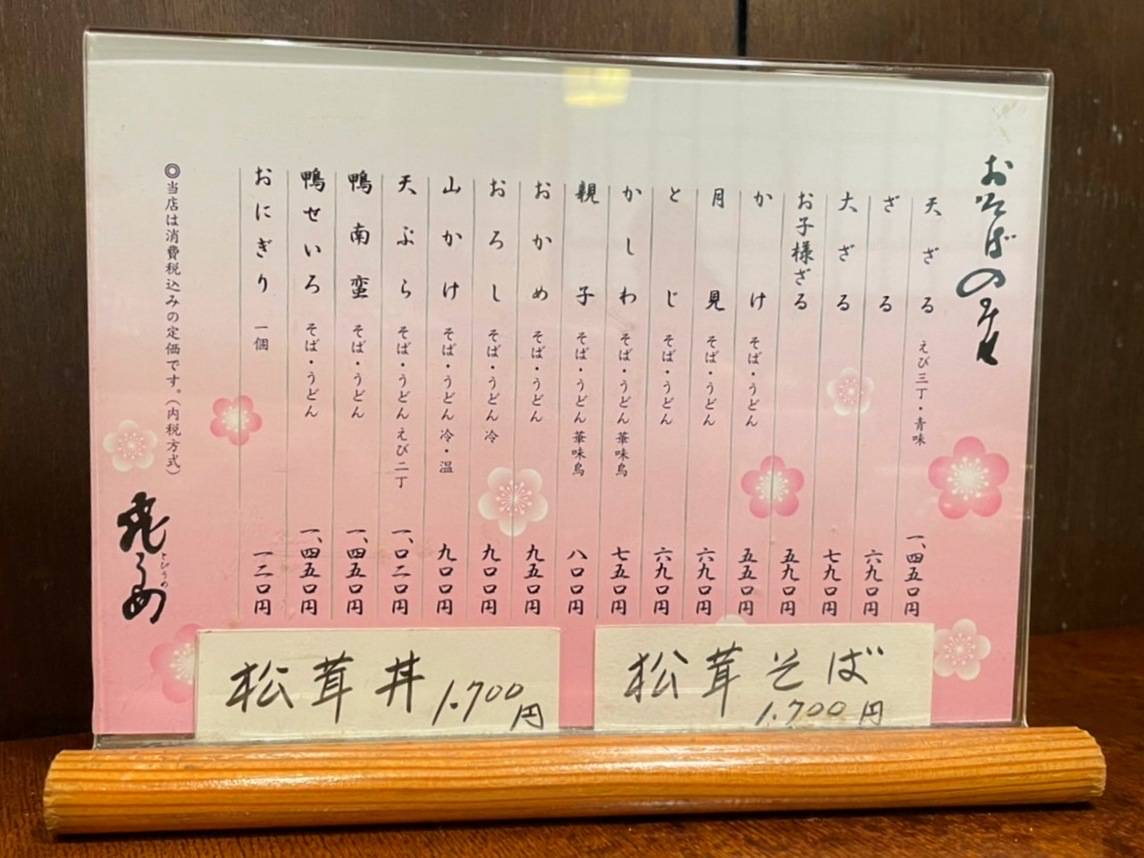 おそばの栞
天ざる えび三丁・青味 一、四五〇円
ざる 六九〇円
大ざる 七九〇円
お子様ざる 五九〇円
かけ そば・うどん 五五〇円
月見 そば・うどん 六九〇円
とじ そば・うどん 六九〇円
かしわ そば・うどん 華味鳥 七五〇円
親子 そば・うどん 華味鳥 八〇〇円
おかめ そば・うどん 九五〇円
おろし そば・うどん 冷 九〇〇円
山かけ そば・うどん 冷・温 九〇〇円
天ぷら そば・うどん えび二丁 一、〇二〇円
鴨南蛮 そば・うどん 一、四五〇円
鴨せいろ そば・うどん 一、四五〇円
おにぎり 一個 一二〇円
◎当店は消費税込みの定価です。（内税方式）
飛うめ
とびうめ
松茸そば
1.700円
松茸丼 1.700円